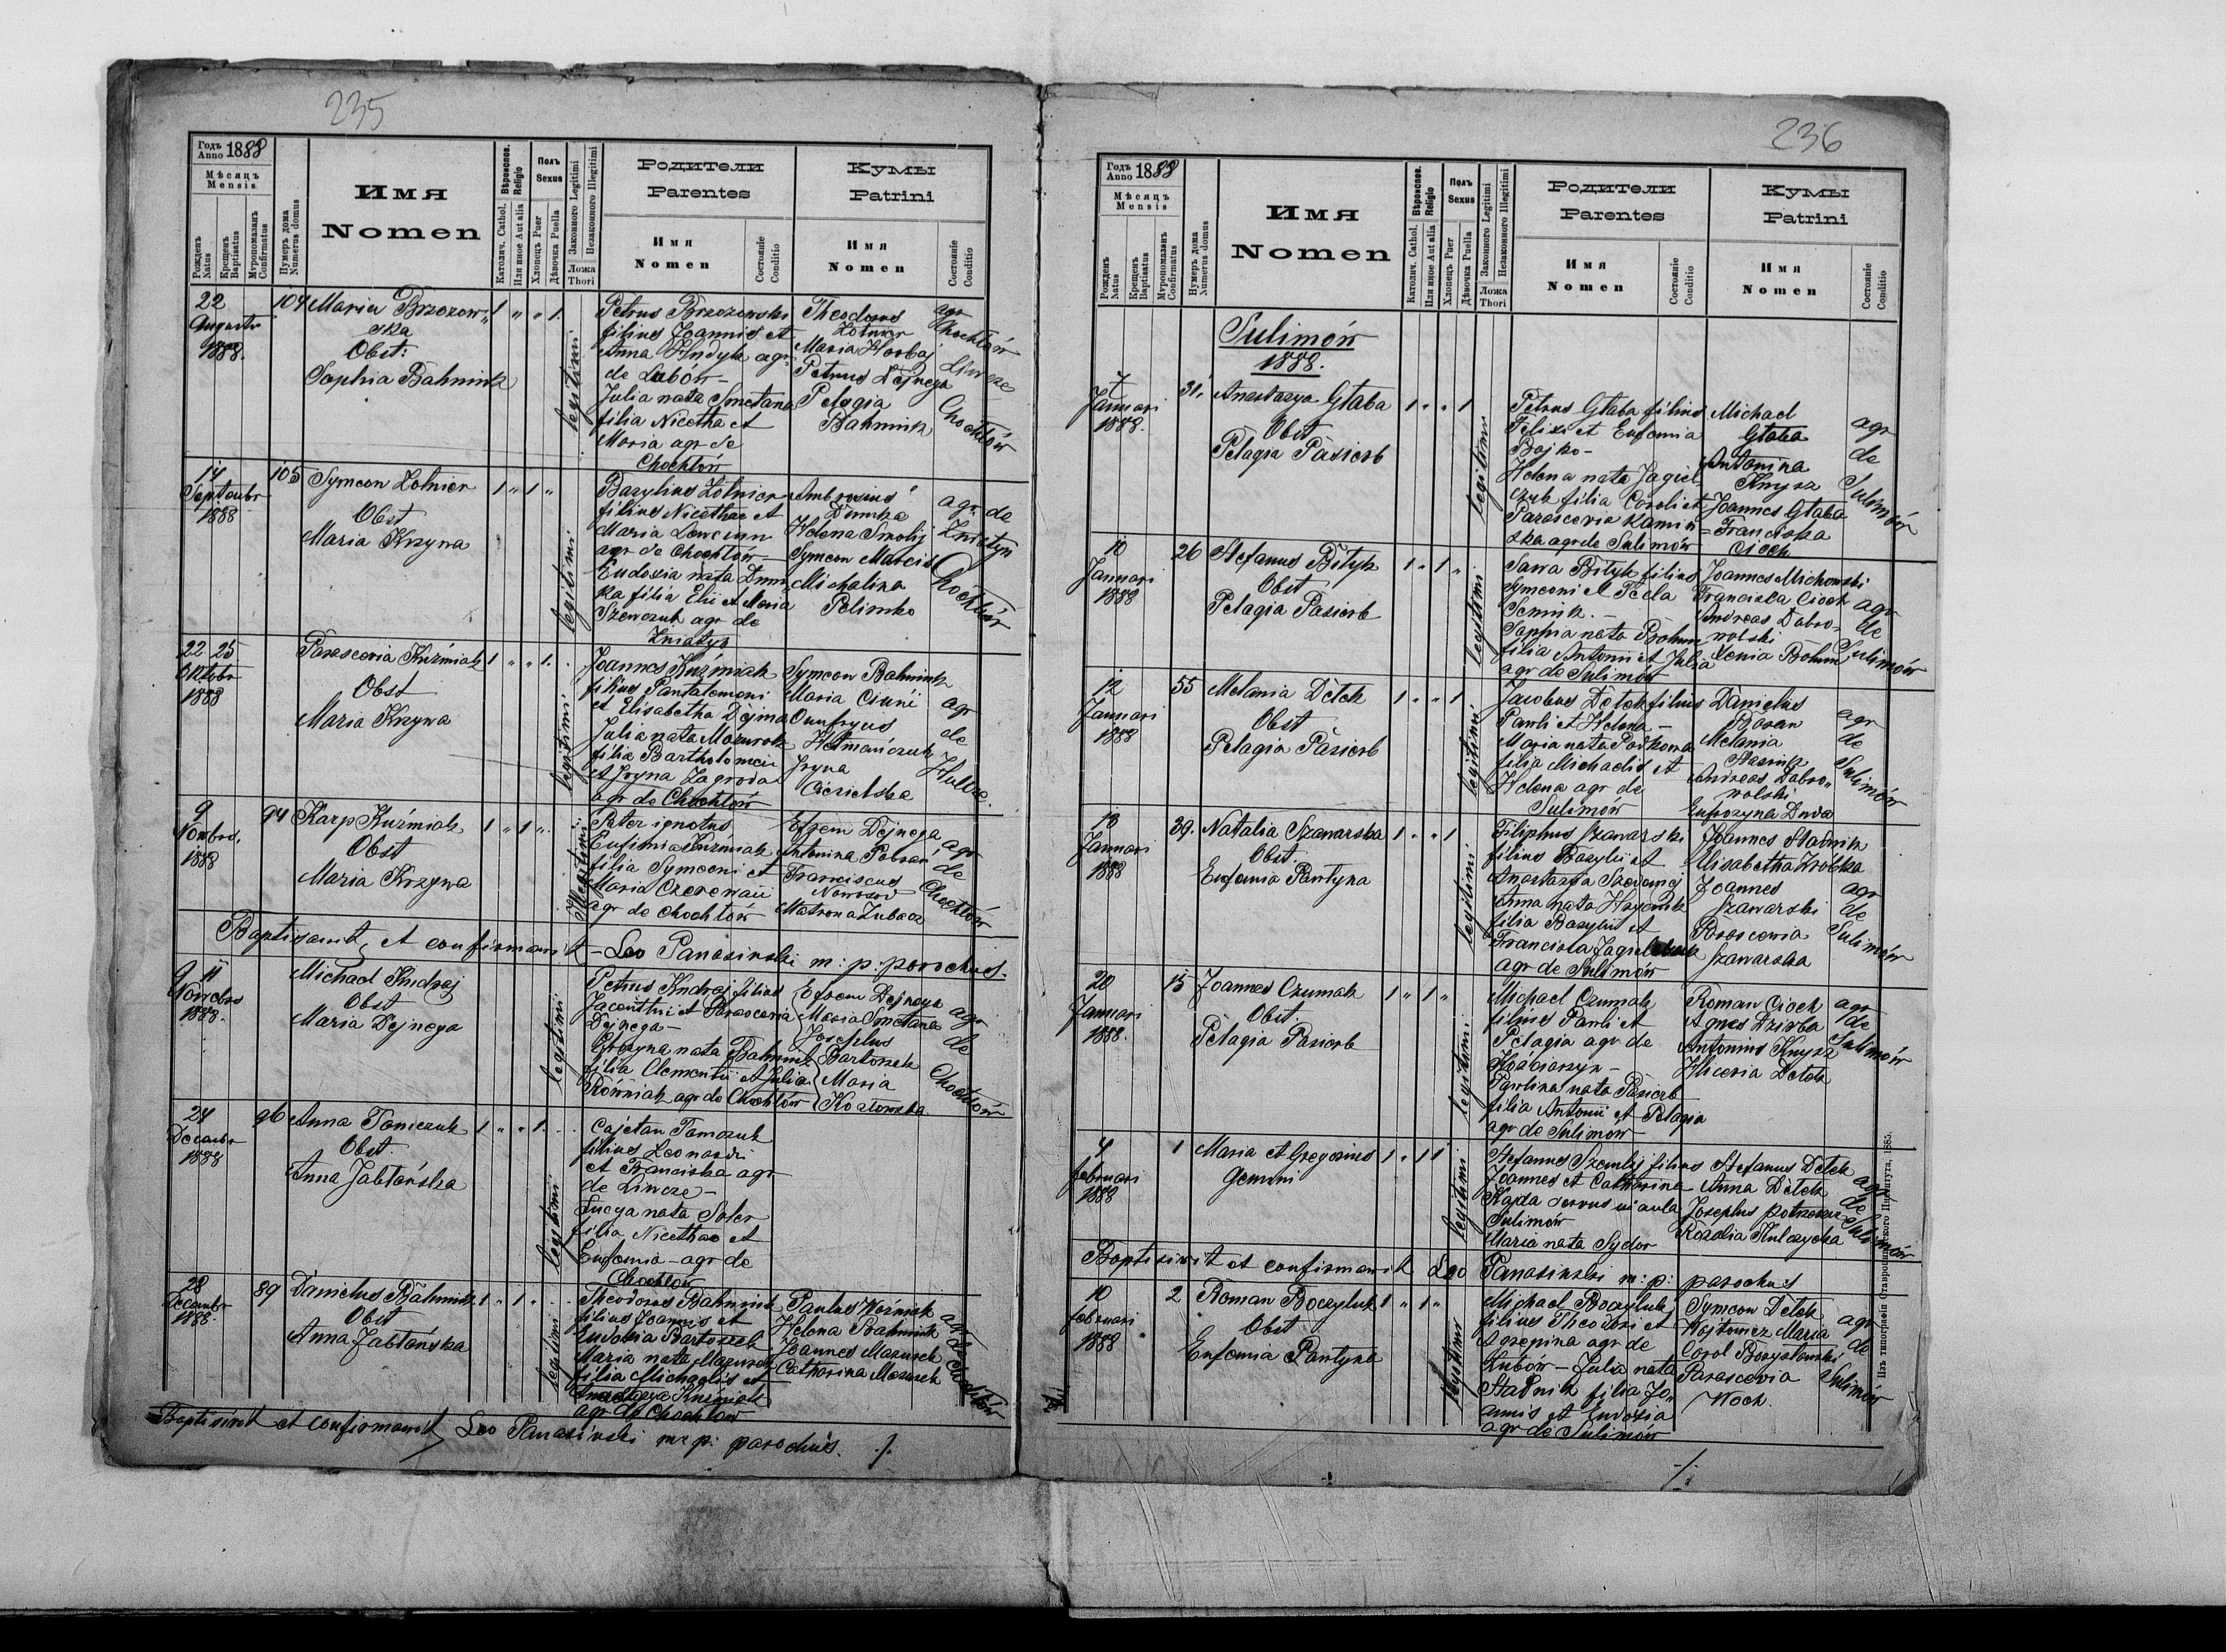 235
Годъ Anno 1888
Мѣсяцъ Mensis
Рожденъ Natus
Крещенъ Baptisatus
Мѵропомазанъ Confirmatus
Нумеръ дома Numerus domus
Имя
Nomen
Вѣроиспов. Religio
Католич. Cathol.
Или иное Aut alia
Полъ Sexus
Хлопецъ Puer
Дѣвочка Puella
Законного Legitimi
Незаконного Illegitimi
Ложа Thori
Родители
Parentes
Имя Nomen
Состояніе Conditio
Кумы
Patrini
Имя Nomen
Состояніе Conditio
22 Augusti 1888.
104
Maria Brzozow-
ska
Obst:
Sophia Bahniuk
1 " " 1.
legitimi
Petrus Brzozowski
filius Joannis et
Anna Hudyk agr.
de Lubów -
Julia nata Smetana
filia Nicetha et
Maria agr de
Chochłów
Theodorus
Żołnier
Maria Horbaj
Petrus Dejnega
Pelagia
Bahniuk
agr
Chochłów
Liwcze
Chochłów
14 Septembr 1888
105
Symeon Żołnier
Obst
Maria Krzywa
1 " 1 "
legitimi
Bazylius Żołnier
filius Nicethae et
Maria
agr de Chochłów
Eudoxia nata
ka filia Elii et Maria
Szewczuk agr de
Zniatyn
Ambrosius
Helena Smolij
Symeon Marcis
Michalina
Polinko
agr. de
Zniatyn
Chochłów
22 25
Oktobr
1888
Parascevia Kuźmiak
Obst
Maria Krzywa
1 " " 1.
legitimi
Joannes Kuźmiak
filius Pantalemoni
et Elisabetha Dejma
Julia nata Mazurok
filia Bartholomei
et Iryna Zagroda
agr de Chochłów
Symeon Bahniuk
Maria
Onufryus
Hetmańczuk
Iryna
Cicielska
agr
de
Hulcze.
9
Novbr.
1888
94
Karp Kuźmiak
Obst
Maria Krzywa
1 " 1 "
Illegitimi
Pater ignotus
Eufimia Kuźmiak
filia Symeoni et
Maria
agr de Chochłów
Efrem Dejnega
Antonina
Franciscus
Matrona Zubacz
agr
de
Chochłów
Baptisavit, et confirmavit - Leo Panasinski m: p: parochus.
9 11
Novebr
1888.
Michael Kudraj
Obst
Maria Dejnega
legitimi
Petrus Kudraj filius
Jacenthi et Parascevia
Dejnega -
nata Bahniuk
filia Clementii et Julia
Kuźmiak agr de Chochłów
Efrem Dejnega
Maria Smetana
Josephus
Bartoszek
Maria
Kozłowska
agr
de
Chochłów
24
Decembr
1888
96
Anna Tomczuk
Obst.
Anna Jabłońska
1 " " 1.
legitimi
Cajetan Tomczuk
filius Leonardi
et Franciska agr
de Liwcze -
Łucya nata Soler
filia Nicethae et
Eufemia - agr de
Chochłów
28
Decembr
1888.
89
Danielus Bahniuk
Obst
Anna Jabłońska
1 " 1 "
legitimi
Theodorus Bahniuk
filius Joannis et
Eudokia Bartoszek
Maria nata Mazurek
filia Michaelis et
Anastazya Kuźmiak
agr de Chochłów
Paulus Woźniak
Helena Bahniuk
Joannes Mazurek
Catharina Mazurek
agr de Chochłów
Baptisivit et confirmavit Leo Panasinski m: p: parochus. ./.
236
Годъ Anno 1888
Мѣсяцъ Mensis
Рожденъ Natus
Крещенъ Baptisatus
Мѵропомазанъ Confirmatus
Нумеръ дома Numerus domus
Имя
Nomen
Вѣроиспов. Religio
Католич. Cathol.
Или иное Aut alia
Полъ Sexus
Хлопецъ Puer
Дѣвочка Puella
Законного Legitimi
Незаконного Illegitimi
Ложа Thori
Родители
Parentes
Имя Nomen
Состояніе Conditio
Кумы
Patrini
Имя Nomen
Состояніе Conditio
Sulimów
1888.
7
Januari
1888.
31.
Anastazya Głaba
Obst
Pelagia Pasierb
1 " " 1
legitimi
Petrus Głaba filius
Felixi et Eufemia
Bojko -
Helena nata Jagiel-
czuk filia Caroli et
Parascevia Kamin
ska agr de Sulimów
Michael
Głaba
Antonina
Knysz
Joannes Głaba
Franciska
Cioch
agr
de
Sulimów
10
Januari
1888
26
Stefanus Bityk
Obst
Pelagia Pasierb
1 " 1 "
legitimi
Sawa Bityk filius
Symeoni et Tecla
Semiuk. -
Sophia nata Bohun
filia Antonii et Julia
agr de Sulimów
Joannes Michowski
Franciska Cioch
Andreas Dabro-
wolski
Xenia Bohun
agr
de
Sulimów
12
Januari
1888
55
Melania Detek
Obst
Pelagia Pasierb
1 " " 1
legitimi
Jacobus Detek filius
Pawli et Helena -
Maria nata Podkowa
filia Michaelis et
Helena agr de
Sulimów
Danielus
Rosan
Melania
Andreas Dabro-
wolski
Eufrozyna Duda
agr
de
Sulimów
18
Januari
1888
39.
Natalia Szawarska
Obst.
Eufemia Pantyna
1 " " 1
legitimi
Filiphus Szawarski
filius Bazylii et
Anastazya
Anna nata
filia Bazylii et
Franciska
agr de Sulimów
Joannes Stadnik
Elisabetha
Joannes
Szawarski
Parascevia
Szawarska
agr
de
Sulimów
20
Januari
1888.
15
Joannes Czumak
Obst.
Pelagia Pasierb
1 " 1 "
legitimi
Michael Czumak
filius Pauli et
Pelagia agr de
Kościaszyn -
Paulina nata Pasierb
filia Antonii et Pelagia
agr de Sulimów
Roman Cioch
Agnes Dziuba
Antonius Knysz
Hliceria Detek
agr
de
Sulimów
4
februari
1888
1
Maria et Gregorius
Gemini
1 " 1 1
legitimi
Stefanus filius
Joannes et Catharina
Kajda servus in aula
Sulimów
Maria nata Sydor
Stefanus Detek
Anna Detek
Josephus
Rozalia Kulczycka
agr
de
Sulimów
Baptisivit et confirmavit Leo Panasinski m: p: parochus
10
februari
1888
2
Roman Boczyluk
Obst
Eufemia Pantyna
1 " 1 "
legitimi
Michael Boczyluk
filius Theodori et
agr de
Lubów - Julia nata
Stadnik filia Jo-
annis et Eudoxia
agr de Sulimów
Symeon Detek
Wojtowicz Maria
Carol Borysławski
Parascevia
Woch.
agr
de
Sulimów
./.
Изъ типографіи Ставропигійского Института. 1885.